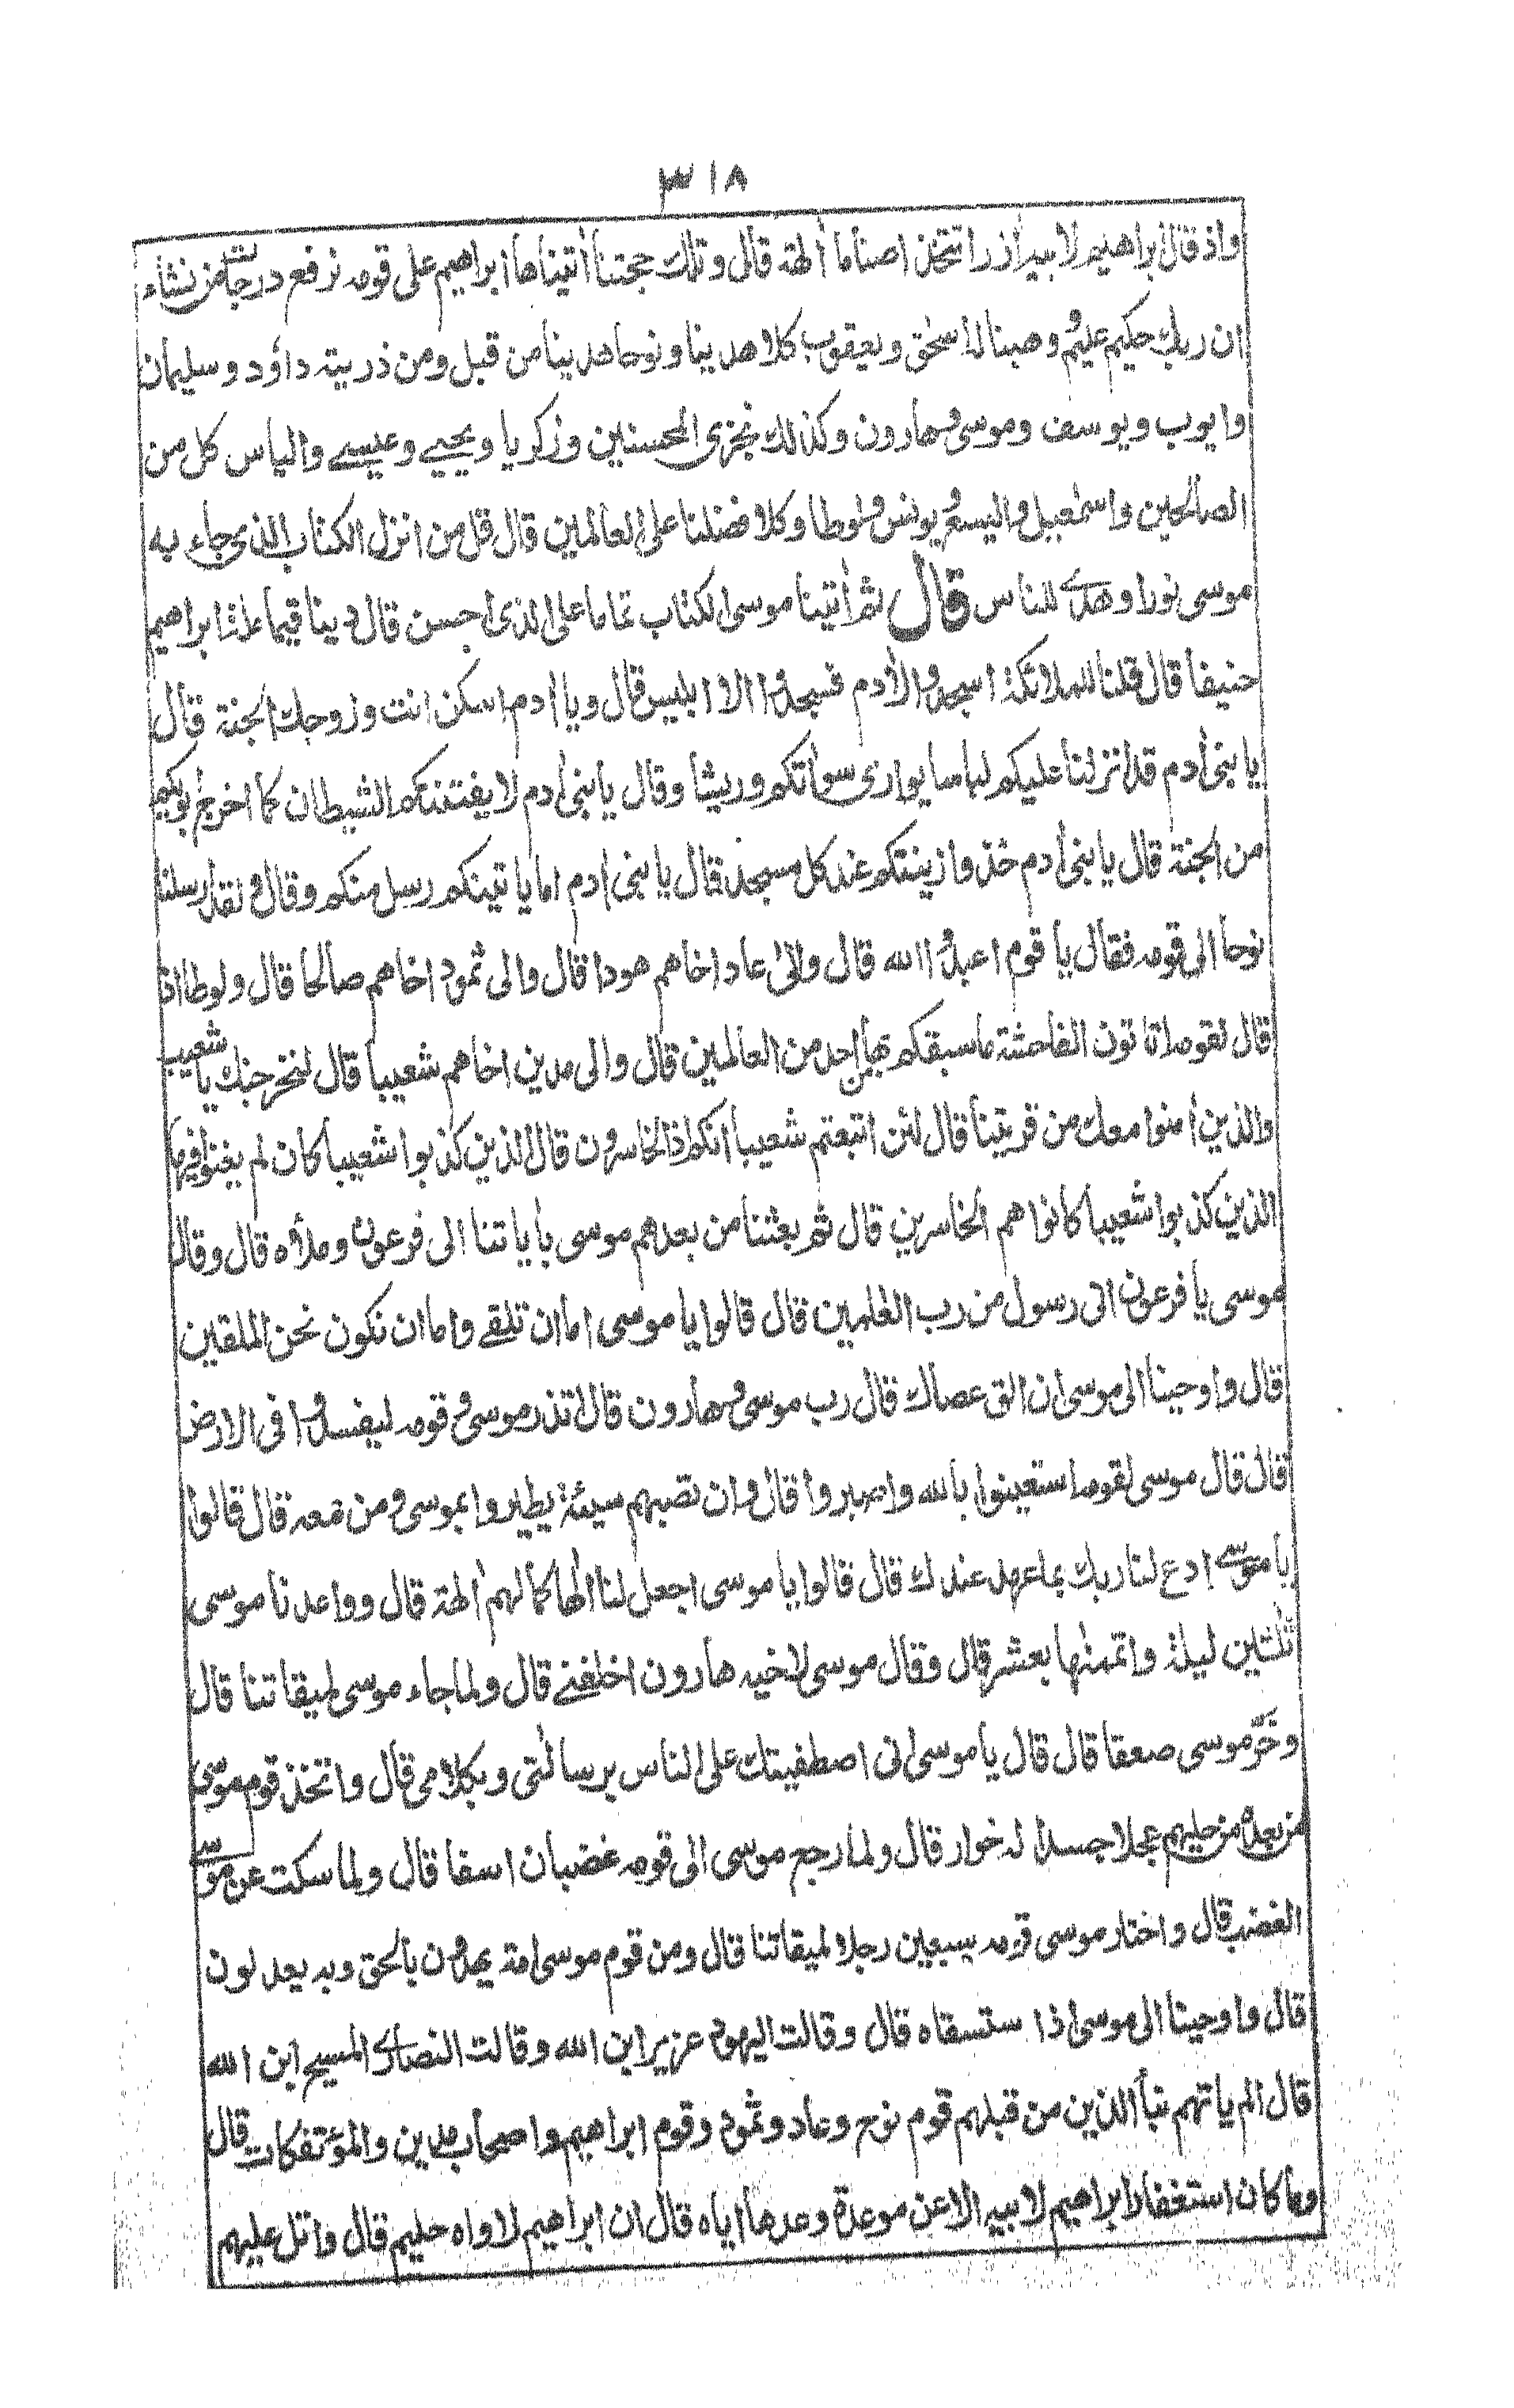 ٣١٨
واذ قال ابراهيم لابيه أزر اتتخذ اصناما ألهة قال وتلك حجتنا أتيناها ابراهيم على قومه نرفع درجات من نشاء
ان ربك حكيم عليم ووهبنا له اسحق ويعقوب كلا هدينا ونوحا هدينا من قبل ومن ذريته داؤد وسليمان
وايوب ويوسف وموسى وهارون وكذلك نجزى المحسنين وزكريا ويحيے وعيسے والياس كل من
الصالحين واسمعيل واليسع ويونس ولوطا وكلا فضلنا على العالمين قال قل من انزل الكتاب الذى جاء به
موسى نورا وهدے للناس قال ثم أتينا موسى الكتاب تماما على الذى احسن قال دينا قيما ملة ابراهيم
حنيفا قال قلنا للملائكة اسجدوا لأدم فسجدوا الا ابليس قال ويا أدم اسكن انت وزوجك الجنة قال
يا بنى أدم قد انزلنا عليكم لباسا يوارى سوأتكم وريشا وقال يا بنى أدم لا يفتننكم الشيطان كما اخرج ابويكم
من الجنة قال يا بنى أدم خذوا زينتكم عند كل مسجد قال يا بنى أدم اما ياتينكم رسل منكم وقال ولقد ارسلنا
نوحا الى قومه فقال يا قوم اعبدوا الله قال والى عاد اخاهم هودا قال والى ثمود اخاهم صالحا قال ولوطا اذ
قال لقومه اتاتون الفاحشة ما سبقكم بها من احد من العالمين قال والى مدين اخاهم شعيبا قال لنخرجنك يا شعيب
والذين أمنوا معك من قريتنا قال لئن اتبعتم شعيبا انكم اذا لخاسرون قال الذين كذبوا شعيبا كان لم يغنوا فيها
الذين كذبوا شعيبا كانوا هم الخاسرين قال ثم بعثنا من بعدهم موسى باياتنا الى فرعون وملأه قال وقال
موسى يا فرعون انى رسول من رب العلمين قال قالوا يا موسى اما ان تلقے واما ان نكون نحن الملقين
قال واوحينا الى موسى ان الق عصاك قال رب موسى وهارون قال اتذر موسى وقومه ليفسدوا فى الارض
قال قال موسى لقومه استعينوا بالله واصبروا قال وان تصبهم سيئة يطيروا بموسى ومن معه قال قالوا
يا موسے ادع لنا ربك بما عهد عندك قال قالوا يا موسى اجعل لنا الها كما لهم ألهة قال وواعدنا موسى
ثلثين ليلة واتممنها بعشر قال وقال موسى لاخيه هارون اخلفنے قال ولما جاء موسى لميقاتنا قال
وخرّ موسى صعقا قال قال يا موسى انى اصطفيتك على الناس برسالتى وبكلامى قال واتخذ قوم موسى
من بعده من حليهم عجلا جسدا له خوار قال ولما رجع موسى الى قومه غضبان اسفا قال ولما سكت عن موسے
الغضب قال واختار موسى قومه سبعين رجلا لميقاتنا قال ومن قوم موسى امة يهدون بالحق وبه يعدلون
قال واوحينا الى موسى اذا ستسقاه قال وقالت اليهود عزير ابن الله وقالت النصارے المسيح ابن الله
قال الم ياتهم نبأ الذين من قبلهم قوم نوح وعاد وثمود وقوم ابراهيم واصحاب مدين والمؤتفكات قال
وما كان استغفار ابراهيم لابيه الا عن موعدة وعدها اياه قال ان ابراهيم لاواه حليم قال واتل عليهم